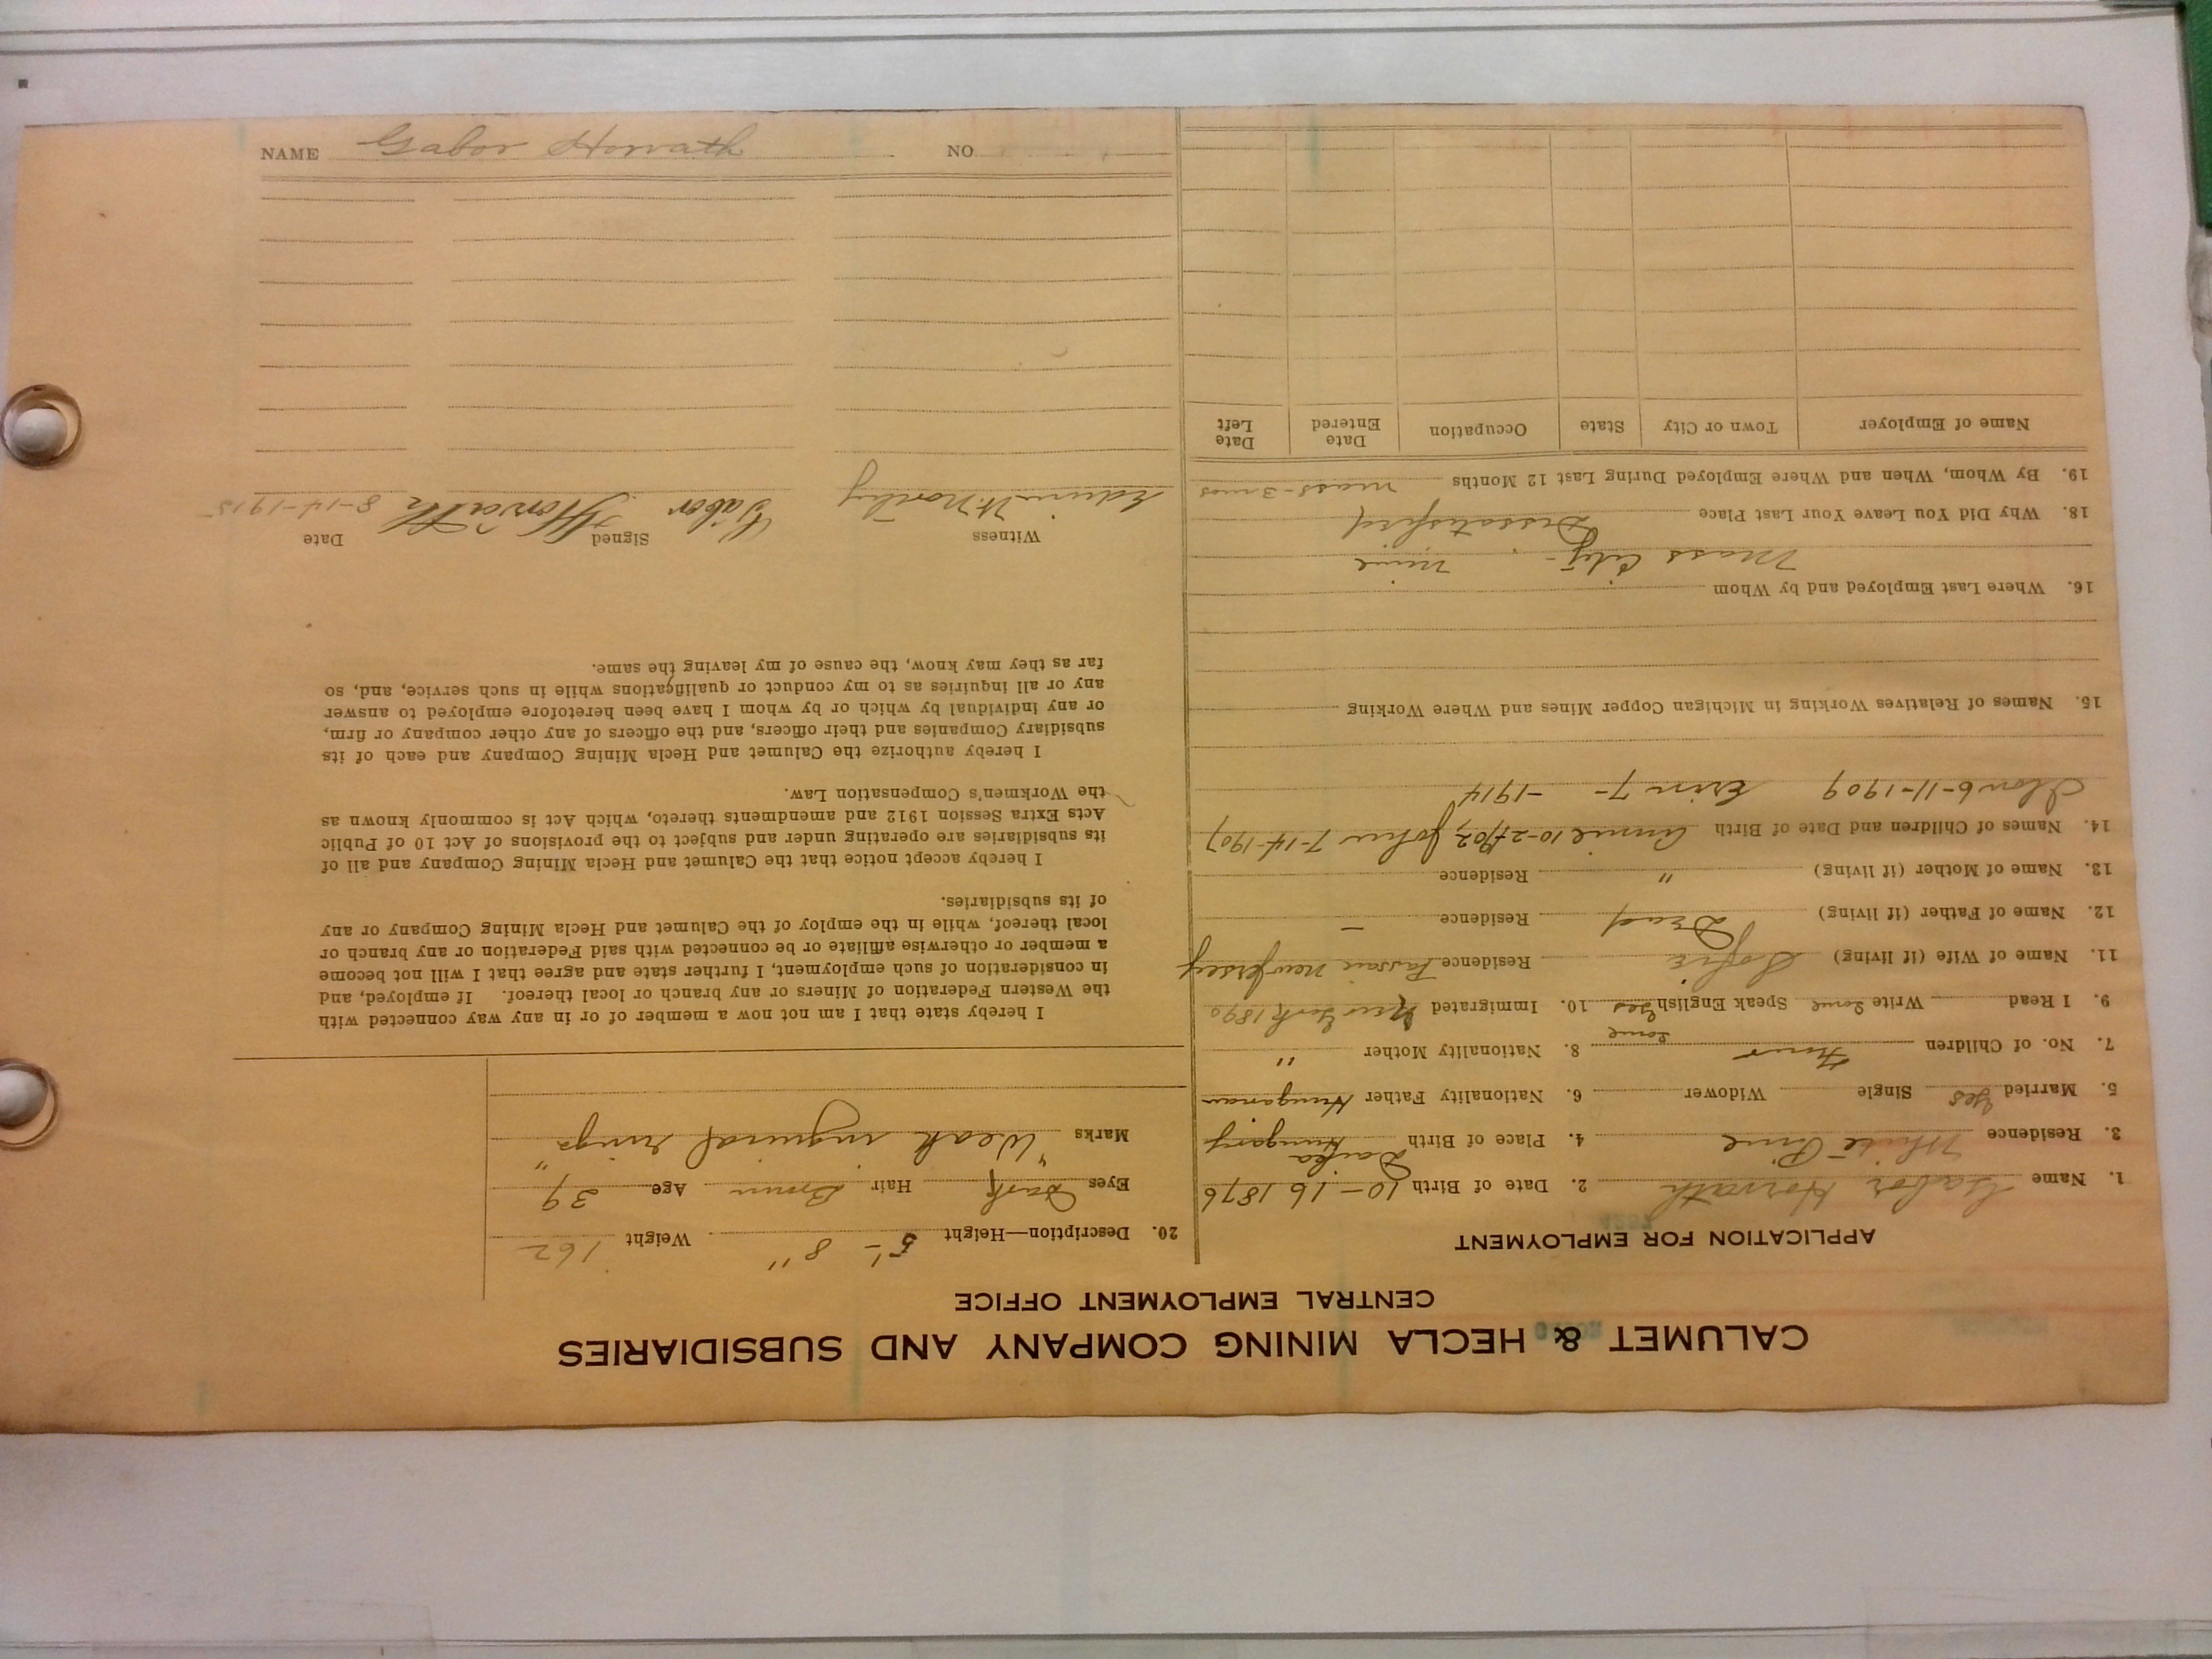 CALUMET & HECLA MINING COMPANY AND SUBSIDIARIES
CENTRAL EMPLOYMENT OFFICE
APPLICATION FOR EMPLOYMENT
1. Name Gabor Horvath 2. Date of Birth 10-16 1876
3. Residence White Pine 4. Place of Birth Hungary
5. Married Yes Single Widower 6. Nationality Father Hungarian
7. No. of Children Four 8. Nationality Mother "
Some
9. I Read Write Some Speak English Yes 10. Immigrated New York 1890
11. Name of Wife (if living) Sofie Residence Passaic New Jersey
12. Name of Father (if living) Dead Residence —
13. Name of Mother (if living) " Residence
14. Names of Children and Date of Birth Annie 10-2-1902, John 7-14-1907
6-11-1909 7- -1914
15. Names of Relatives Working in Michigan Copper Mines and Where Working
16. Where Last Employed and by Whom
Mass City - Mine
18. Why Did You Leave Your Last Place Dissatisfied
19. By Whom, When and Where Employed During Last 12 Months Mass - 3 mos
Name of Employer Town or City State Occupation Date Entered Date Left
20. Description—Height 5'- 8" Weight 162
Eyes Dark Hair Brown Age 39
Marks "Weak inguinal rings"
I hereby state that I am not now a member of or in any way connected with
the Western Federation of Miners or any branch or local thereof. If employed, and
in consideration of such employment, I further state and agree that I will not become
a member or otherwise affiliate or be connected with said Federation or any branch or
local thereof, while in the employ of the Calumet and Hecla Mining Company or any
of its subsidiaries.
I hereby accept notice that the Calumet and Hecla Mining Company and all of
its subsidiaries are operating under and subject to the provisions of Act 10 of Public
Acts Extra Session 1912 and amendments thereto, which Act is commonly known as
the Workmen's Compensation Law.
I hereby authorize the Calumet and Hecla Mining Company and each of its
subsidiary Companies and their officers, and the officers of any other company or firm,
or any individual by which or by whom I have been heretofore employed to answer
any or all inquiries as to my conduct or qualifications while in such service, and, so
far as they may know, the cause of my leaving the same.
Witness Signed Date
Edwin Gabor Horvath 8-14-1915
NAME Gabor Horvath NO